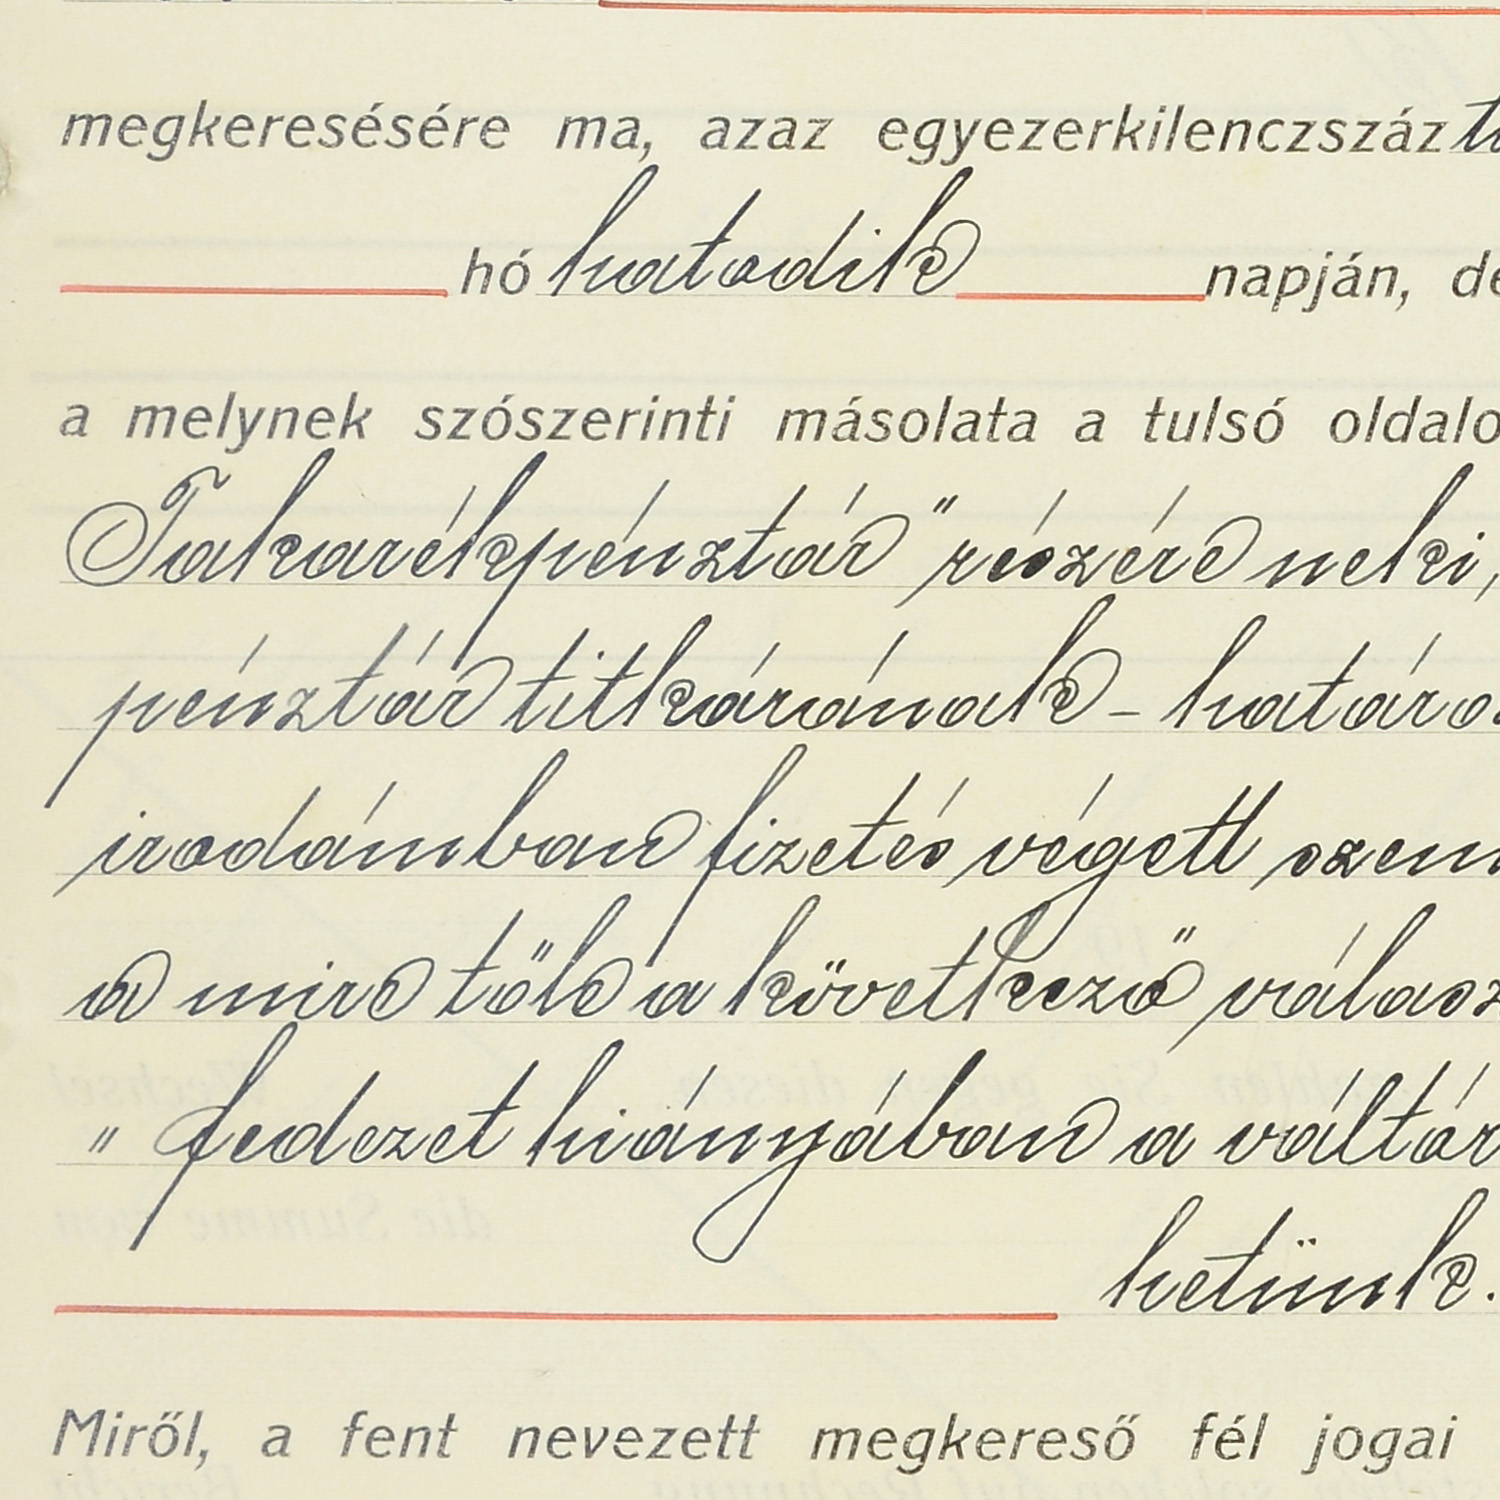 megkeresésére ma, azaz egyezerkilenczszáz
hó hatodik napján, de
a melynek szószerinti másolata a tulsó oldalo
Takarékpénztár" részére neki,
pénztár titkárának - határo
irodámban fizetés végett szem
a mire tőle a következő válasz
" fedezet hiányában a váltár
hetünk.
Miről, a fent nevezett megkereső fél jogai